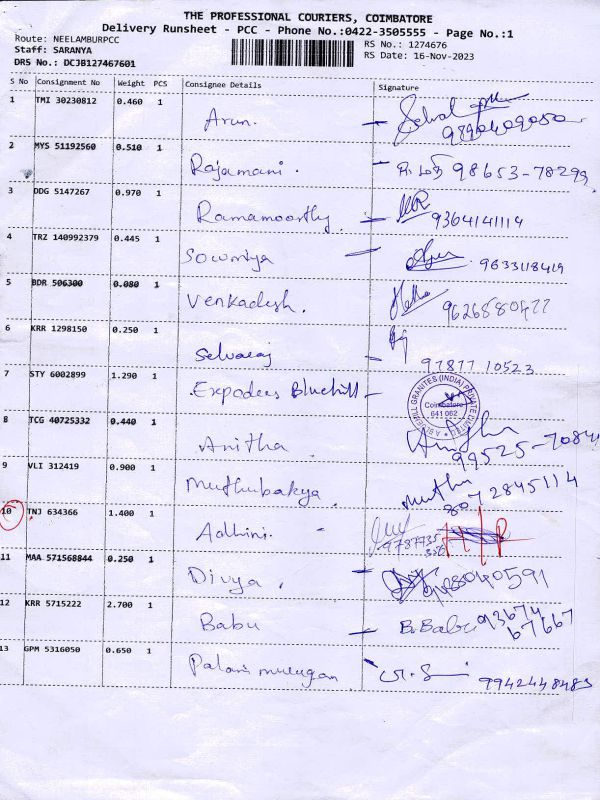 THE PROFESSIONAL COURIERS, COIMBATORE
Delivery Runsheet - PCC - Phone No.:0422-3505555 - Page No.:1
Route: NEELAMBURPCC
Staff: SARANYA
DRS No.: DCJB127467601
RS No.: 1274676
RS Date: 16-Nov-2023
S No Consignment No Weight PCS Consignee Details Signature
1 TMI 30230812 0.460 1 Arun.
2 MYS 51192560 0.510 1 Rajamani. 98653-78299
3 DDG 5147267 0.970 1 Ramamoorthy. 9364141114
4 TRZ 140992379 0.445 1 Sowmiya 9633118419
5 BDR 506300 0.080 1 Venkadesh. 9626880477
6 KRR 1298150 0.250 1 Selvaraj 97877 10523
7 STY 6002899 1.290 1 Expodees Bluehill
BLUEHILL GRANITES (INDIA) PRIVATE LIMITED
Coimbatore
641 062
8 TCG 40725332 0.440 1 Anitha 99525-7084
9 VLI 312419 0.900 1 Muthubakya. Muthu 8072845114
10 TNJ 634366 1.400 1 Aadhini.
11 MAA 571568844 0.250 1 Divya.
12 KRR 5715222 2.700 1 Babu B. Babu 93674
67667
13 GPM 5316050 0.650 1 Palani murugan 9942448483